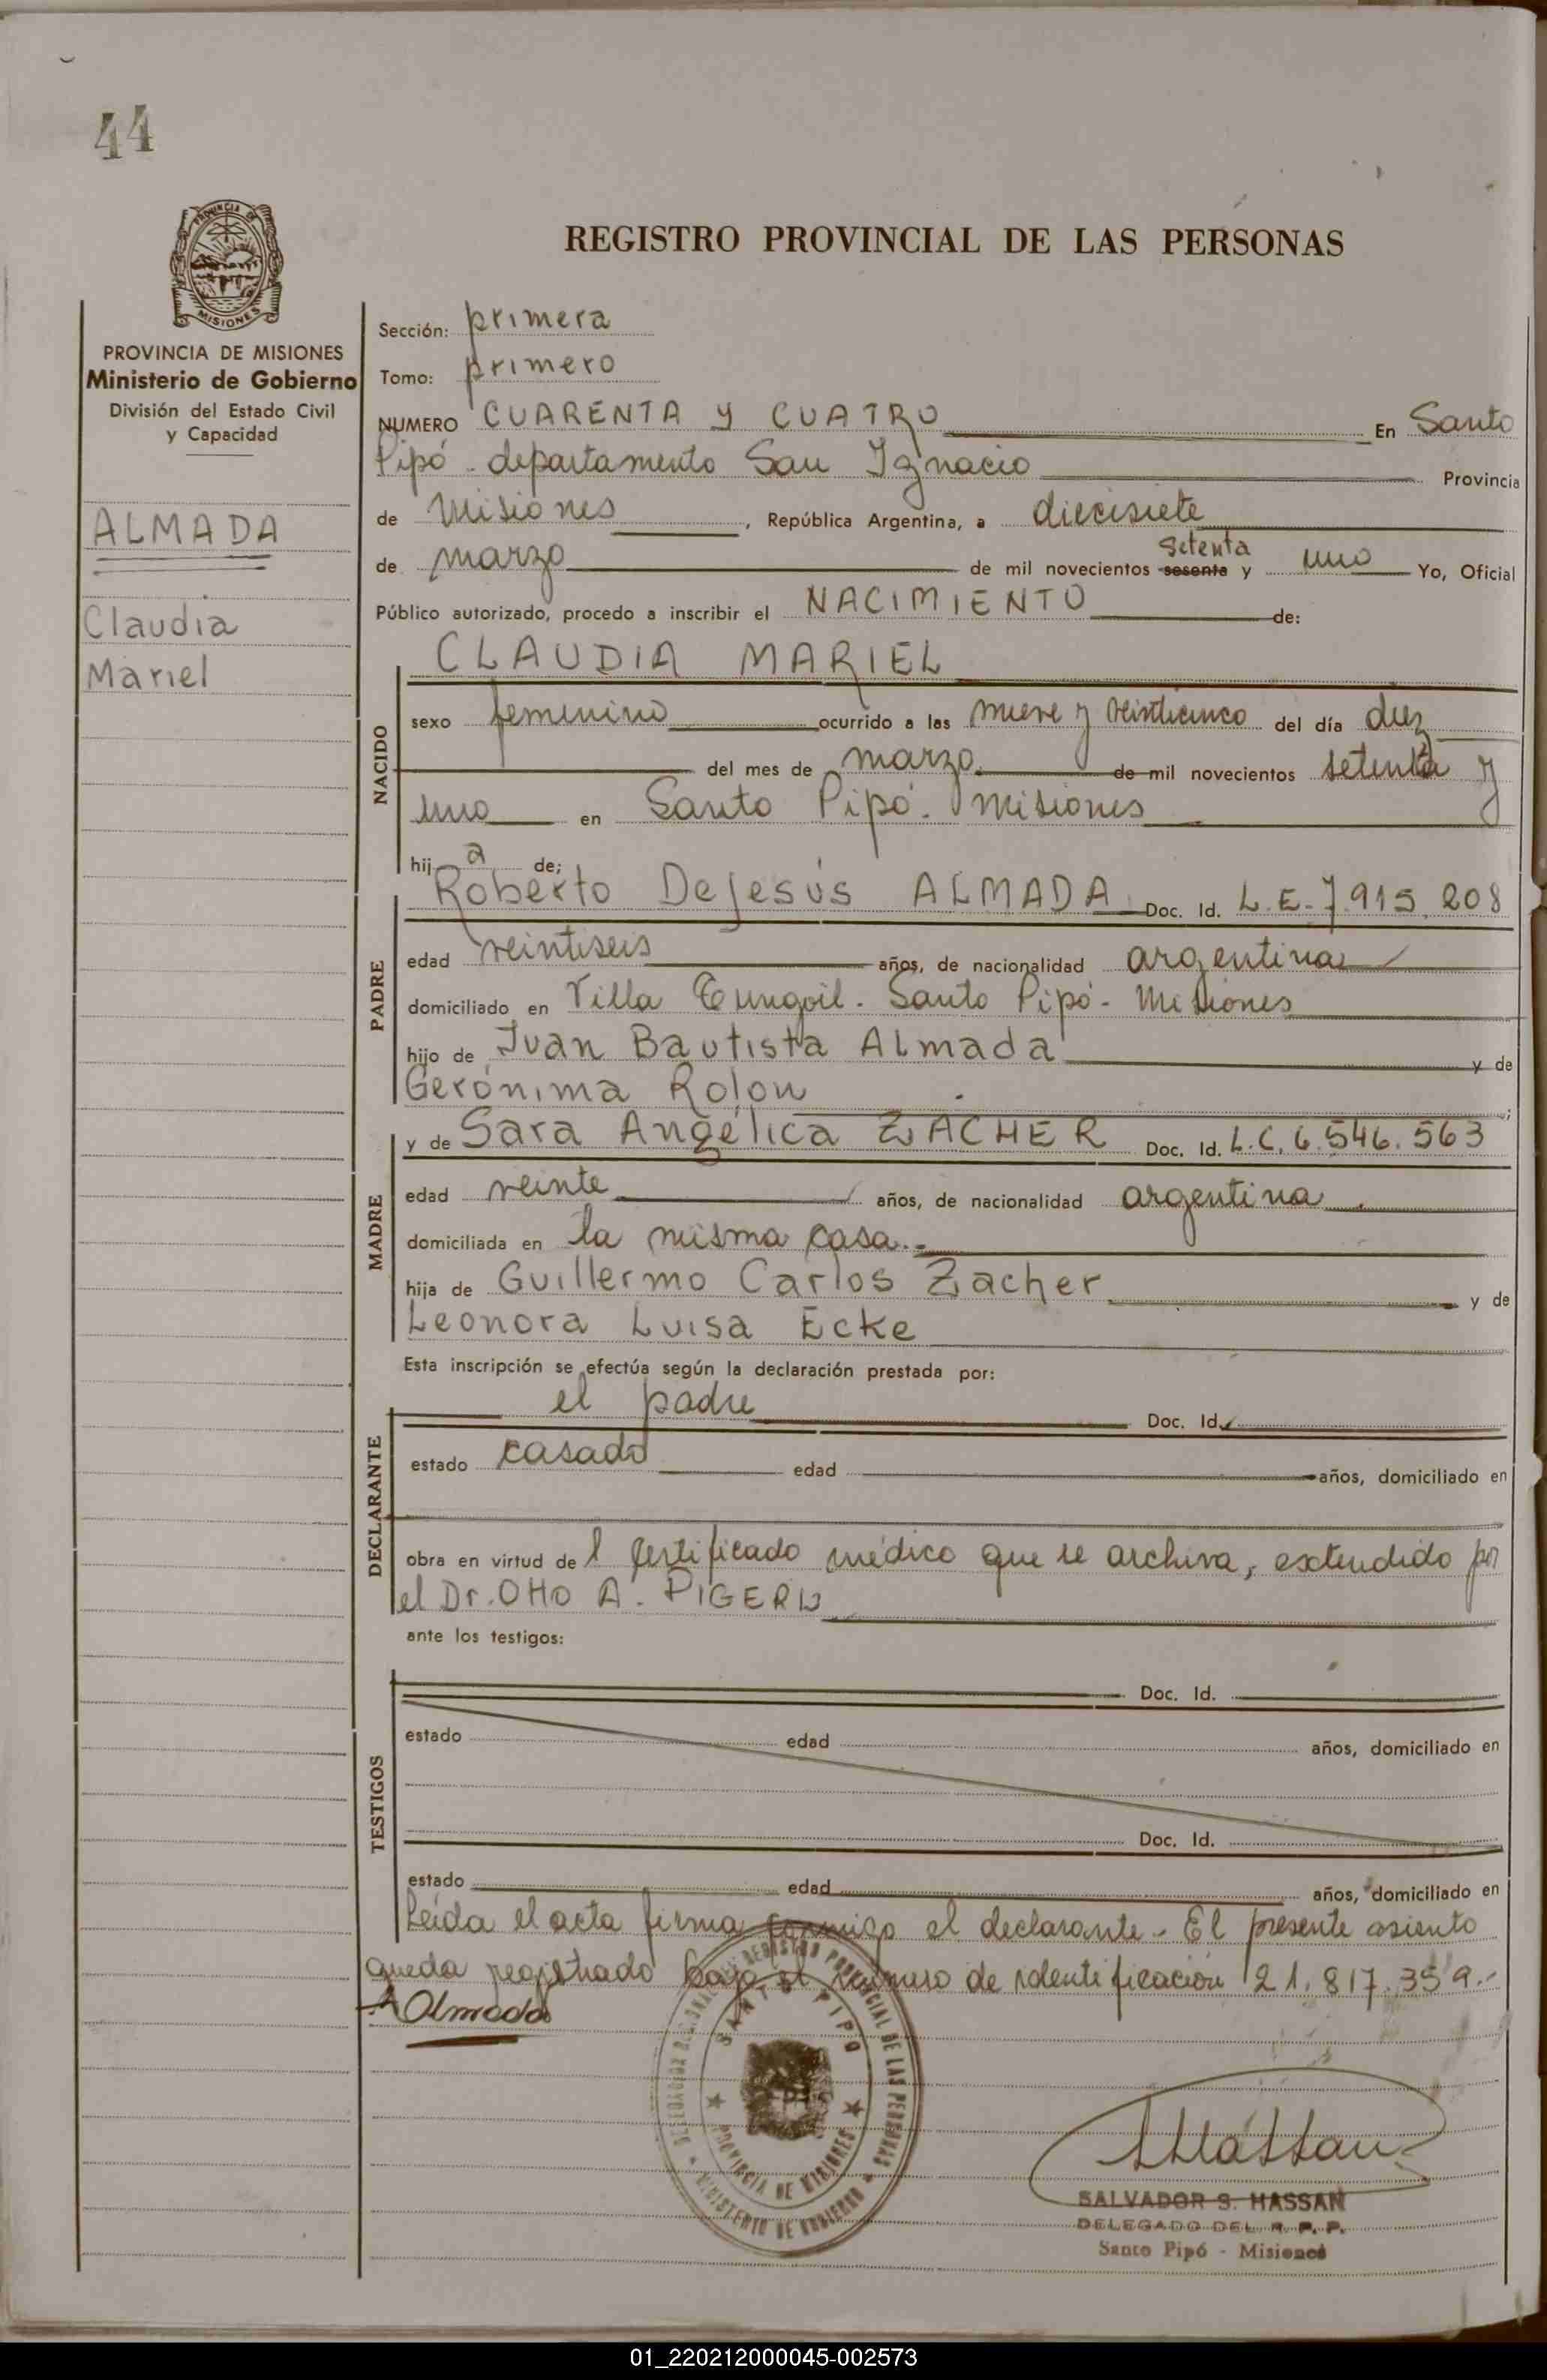 44
PROVINCIA DE
MISIONES
PROVINCIA DE MISIONES
Ministerio de Gobierno
División del Estado Civil
y Capacidad
ALMADA
Claudia
Mariel
REGISTRO PROVINCIAL DE LAS PERSONAS
Sección: primera
Tomo: primero
NUMERO CUARENTA Y CUATRO En Santo
Pipó - departamento San Ignacio Provincia
de Misiones, República Argentina, a diecisiete
setenta
de marzo de mil novecientos sesenta y uno Yo, Oficial
Público autorizado, procedo a inscribir el NACIMIENTO de:
CLAUDIA MARIEL
NACIDO
sexo femenino ocurrido a las nueve y veinticinco del día diez
del mes de marzo de mil novecientos setenta y
uno en Santo Pipó. Misiones
hij a de;
PADRE
Roberto DeJesús ALMADA Doc. Id. L.E. 7.915.208
edad veintiseis años, de nacionalidad argentina
domiciliado en Villa - Santo Pipó - Misiones
hijo de Juan Bautista Almada y de
Gerónima Rolon
MADRE
y de Sara Angélica ZACHER Doc. Id. L.C. 6.546.563
edad veinte años, de nacionalidad argentina
domiciliada en la misma casa.-
hija de Guillermo Carlos Zacher y de
Leonora Luisa Ecke
Esta inscripción se efectúa según la declaración prestada por:
DECLARANTE
el padre Doc. Id.
estado casado edad años, domiciliado en
obra en virtud de l certificado médico que se archiva, extendido por
el Dr. Otto A.
ante los testigos:
TESTIGOS
Doc. Id.
estado edad años, domiciliado en
Doc. Id.
estado edad años, domiciliado en
Leída el acta firma conmigo el declarante.- El presente asiento
queda registrado bajo el número de identificación 21.817.359.-
Almada
REGISTRO PROVINCIAL DE LAS PERSONAS
SANTO PIPO
PROVINCIA DE MISIONES
MINISTERIO DE GOBIERNO
SALVADOR S. HASSAN
DELEGADO DEL R. P. P.
Santo Pipó - Misiones
01_220212000045-002573